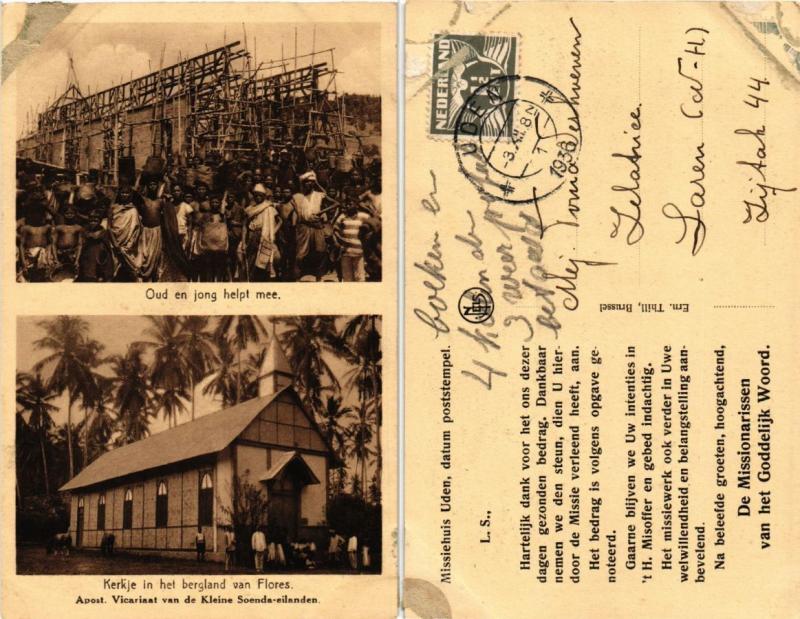 Oud en jong helpt mee.
Kerkje in het bergland van Flores.
Apost. Vicariaat van de Kleine Soenda-eilanden.
Missiehuis Uden, datum poststempel.
L. S.,
Hartelijk dank voor het ons dezer
dagen gezonden bedrag. Dankbaar
nemen we den steun, dien U hier-
door de Missie verleend heeft, aan.
Het bedrag is volgens opgave ge-
noteerd.
Gaarne blijven we Uw intenties in
't H. Misoffer en gebed indachtig.
Het missiewerk ook verder in Uwe
welwillendheid en belangstelling aan-
bevelend.
Na beleefde groeten, hoogachtend,
De Missionarissen
van het Goddelijk Woord.
boeken en
4
3 weer
betaald
Ern. Thill, Brussel
NELS
NEDERLAND
1½
CENT
UDEN
-3.XII.8N
1938
Mej
Laren (N-H)
Zijtak 44.